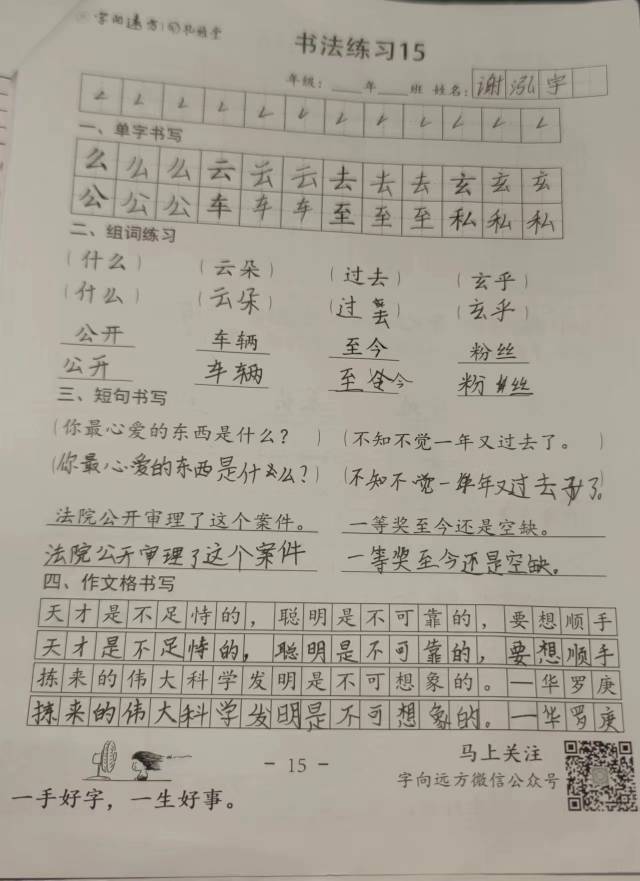 字向远方
书法练习15
年级：____年____班 姓名：谢泓宇
𠃋 𠃋 𠃋 𠃋 𠃋 𠃋 𠃋 𠃋 𠃋 𠃋 𠃋 𠃋
一、单字书写
么么么云云云去去去玄玄玄
公公公车车车至至至私私私
二、组词练习
（什么）（云朵）（过去）（玄乎）
（什么）（云朵）（过去）（玄乎）
公开 车辆 至今 粉丝
公开 车辆 至今 粉丝
三、短句书写
（你最心爱的东西是什么？ ）（不知不觉一年又过去了。 ）
（你最心爱的东西是什么？）（不知不觉一年又过去了。）
法院公开审理了这个案件。 一等奖至今还是空缺。
法院公开审理了这个案件 一等奖至今还是空缺。
四、作文格书写
天才是不足恃的，聪明是不可靠的，要想顺手
天才是不足恃的，聪明是不可靠的，要想顺手
拣来的伟大科学发明是不可想象的。—华罗庚
拣来的伟大科学发明是不可想象的。—华罗庚
- 15 -
马上关注
字向远方微信公众号
一手好字，一生好事。